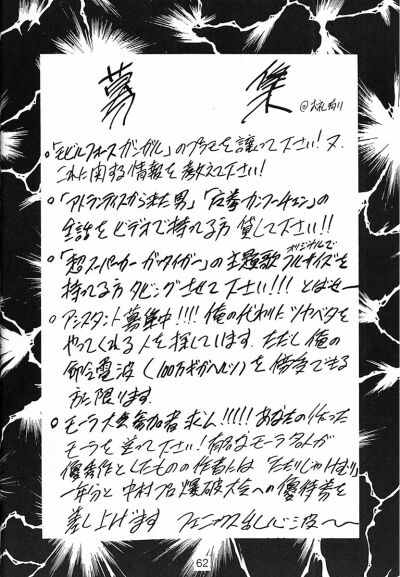 募集
・「モビルフォースガンガル」のプラモを譲って下さい！又、
これに関する情報を教えて下さい！
・「アトランティスから来た男」「石拳カンフーチェン」の
全話をビデオで持てる方貸して下さい!!
・「超スーパーカーガッタイガー」の主題歌オリジナルでフルサイズを
持てる方ダビングさせて下さい!!!
・アシスタント募集中!!!! 俺の代わりにツヤベタを
やってくれる人を探しています。ただし俺の
命令電波(100万ギガヘルツ)を傍受できる
方に限ります。
・モーラ大会参加者求ム!!!!! あなたの作った
モーラを送って下さい！有名なモーラ名人が
優秀作としたものの作者には「ただじゃけむり」
一年分と中村プロ爆破大会への優待券を
差し上げます
62